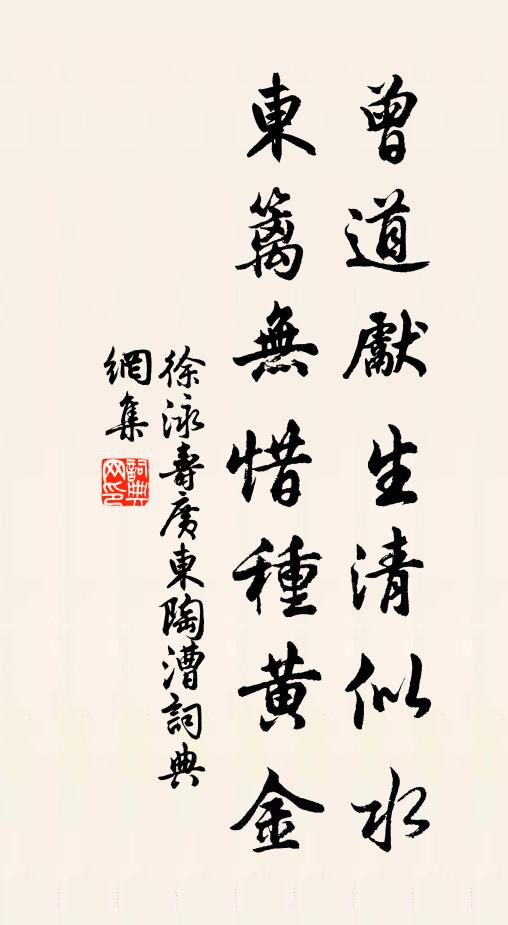 曾道獻生清似水
東籬無惜種黃金
徐泳壽廣東陶漕詞典
網集
詞典網印